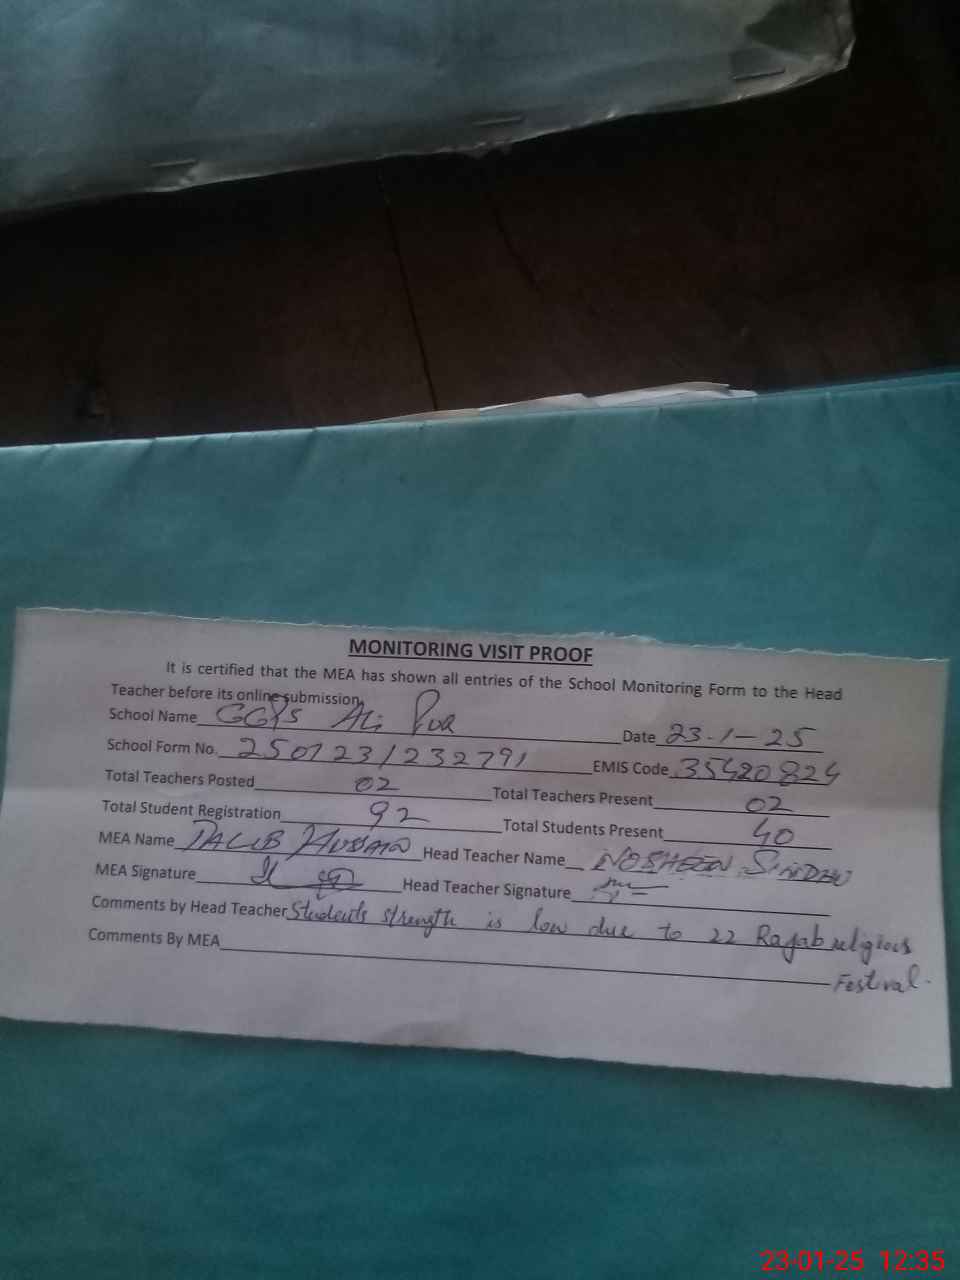 MONITORING VISIT PROOF
It is certified that the MEA has shown all entries of the School Monitoring Form to the Head
Teacher before its online submission.
School Name Ali Pur Date 23-1-25
School Form No. 2501231232791 EMIS Code 35420824
Total Teachers Posted 02 Total Teachers Present 02
Total Student Registration 92 Total Students Present 40
MEA Name TALIB HUSSAIN Head Teacher Name NOSHEEN SINDHU
MEA Signature Head Teacher Signature
Comments by Head Teacher Students strength is low due to 22 Rajab religious
Festival.
Comments By MEA
23-01-25 12:35